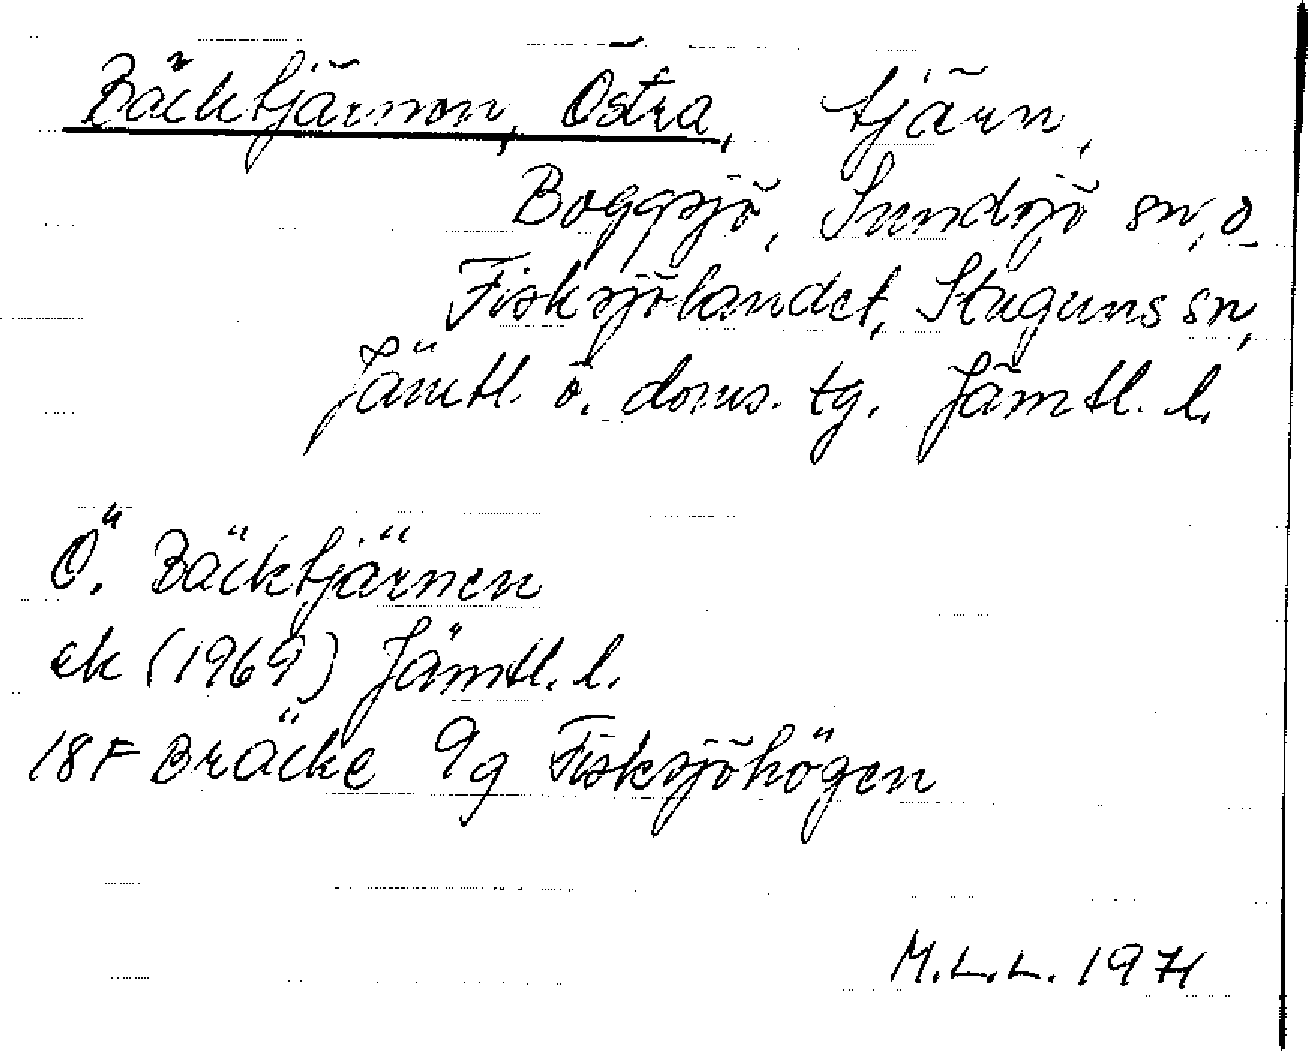 Bäcktjärnen, Östra, tjärn,
Boggsjö, Sundsjö sn, o.
Fisksjölandet, Stuguns sn,
Jämtl. ö. doms. tg. Jämtl. l.
Ö. Bäcktjärnen
ek (1969) Jämtl. l.
18F Bräcke 9g Fisksjöhögen
M.L.L. 1971